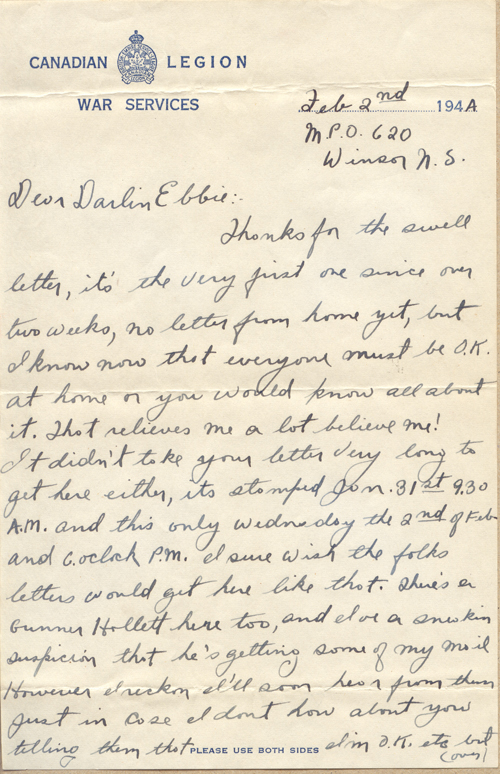 CANADIAN LEGION
WAR SERVICES
Feb 2nd 1944
M.P.O. 620
Winsor N.S.
Dear Darlin Ebbie:-
Thanks for the swell
letter, it's the very first one since over
two weeks, no letter from home yet, but
I know now that everyone must be O.K.
at home or you would know all about
it. That relieves me a lot believe me!
It didn't take your letter very long to
get here either, its stamped Jan. 31st 9.30
A.M. and this only wednesday the 2nd of Feb
and 6.oclock P.M. I sure wish the folks
letters would get here like that. There's a
Gunner Hollett here too, and I've a sneakin
suspicion that he's getting some of my mail
However I reckon I'll soon hear from them
just in case I dont how about you
telling them that I'm O.K. etc but
PLEASE USE BOTH SIDES
(over)